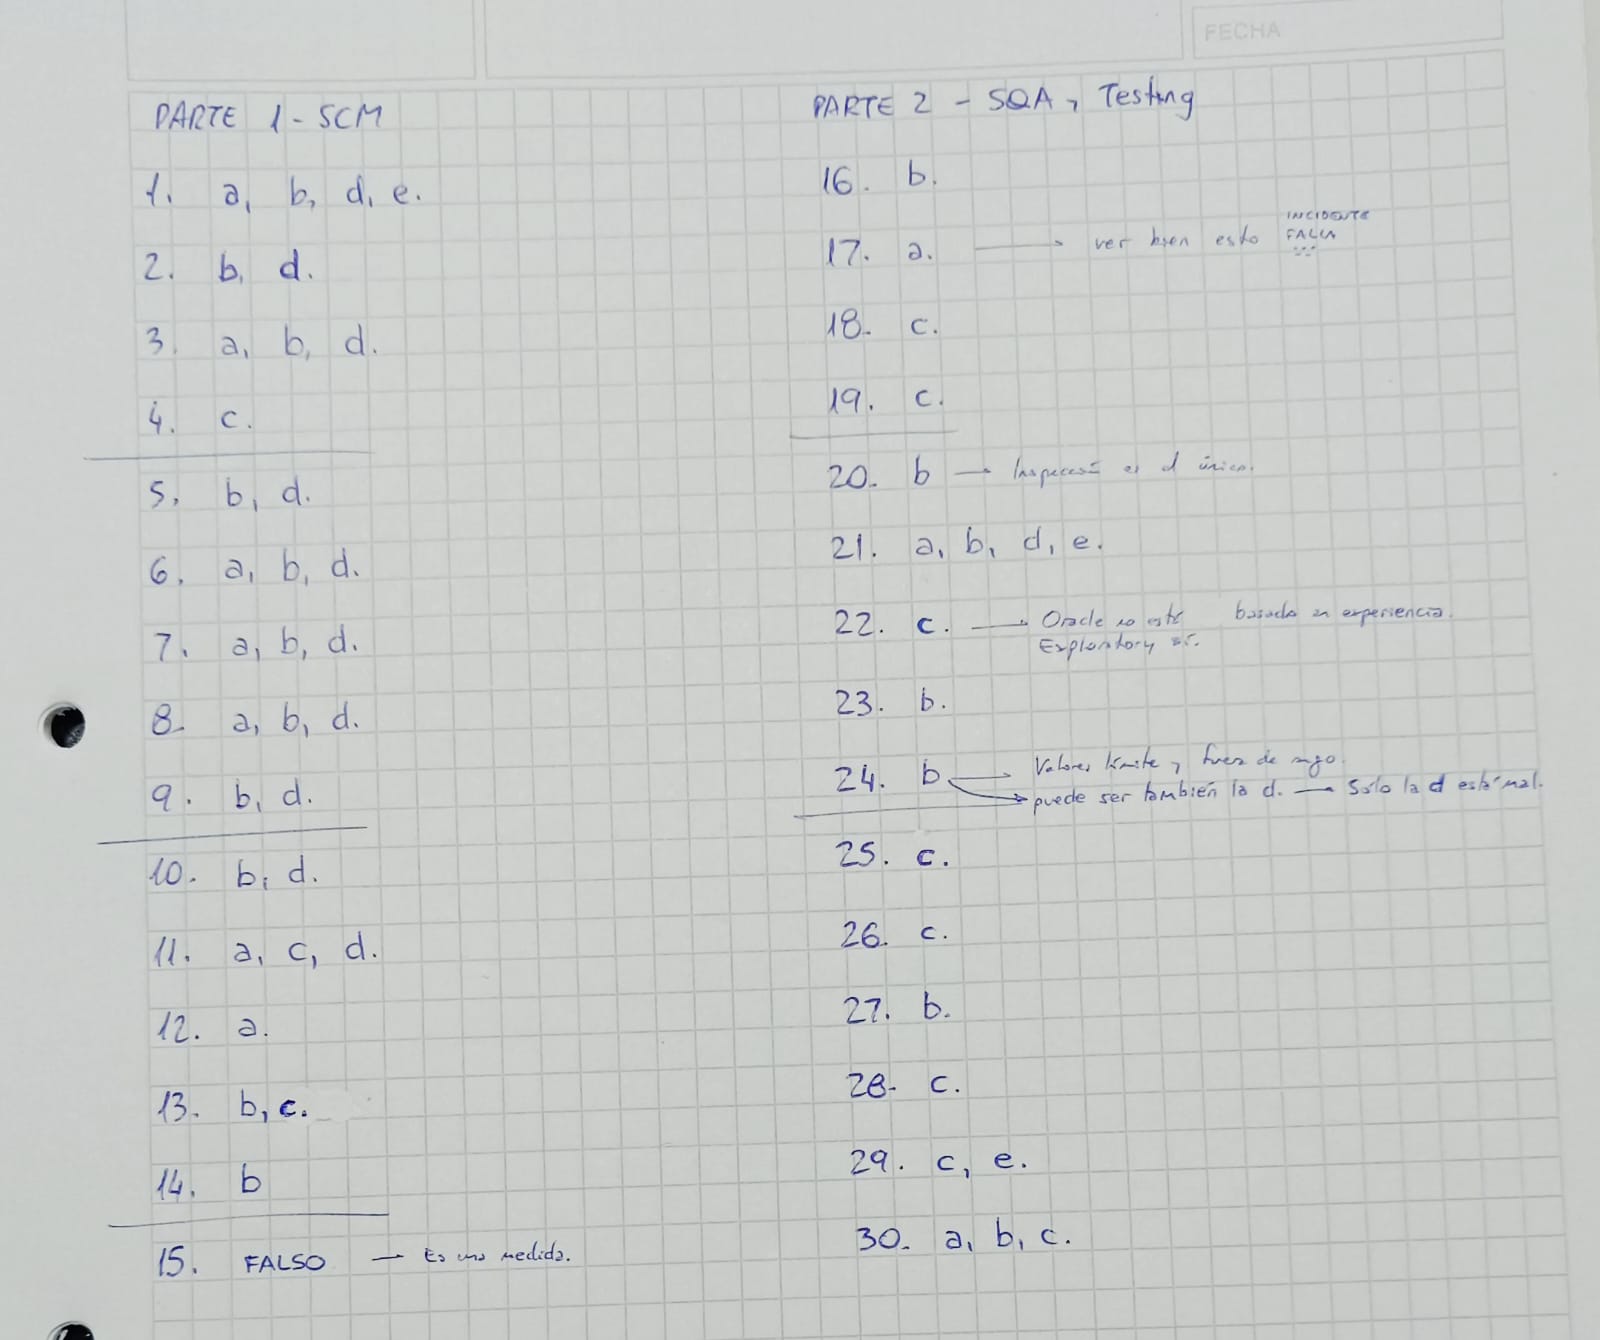 FECHA
PARTE 1 - SCM
1. a, b, d, e.
2. b, d.
3. a, b, d.
4. c.
5. b, d.
6. a, b, d.
7. a, b, d.
8. a, b, d.
9. b, d.
10. b, d.
11. a, c, d.
12. a.
13. b, c.
14. b
15. FALSO → Es una medida.
PARTE 2 - SQA, Testing
16. b.
17. a. → ver bien esto INCIDENTE
FALLA
...
18. c.
19. c.
20. b → Inspección es el único.
21. a, b, d, e.
22. c. → Oracle no está basado en experiencia.
Exploratory sí.
23. b.
24. b → Valores límite y fuera de rango.
→ puede ser también la d. → Solo la d está mal.
25. c.
26. c.
27. b.
28. c.
29. c, e.
30. a, b, c.